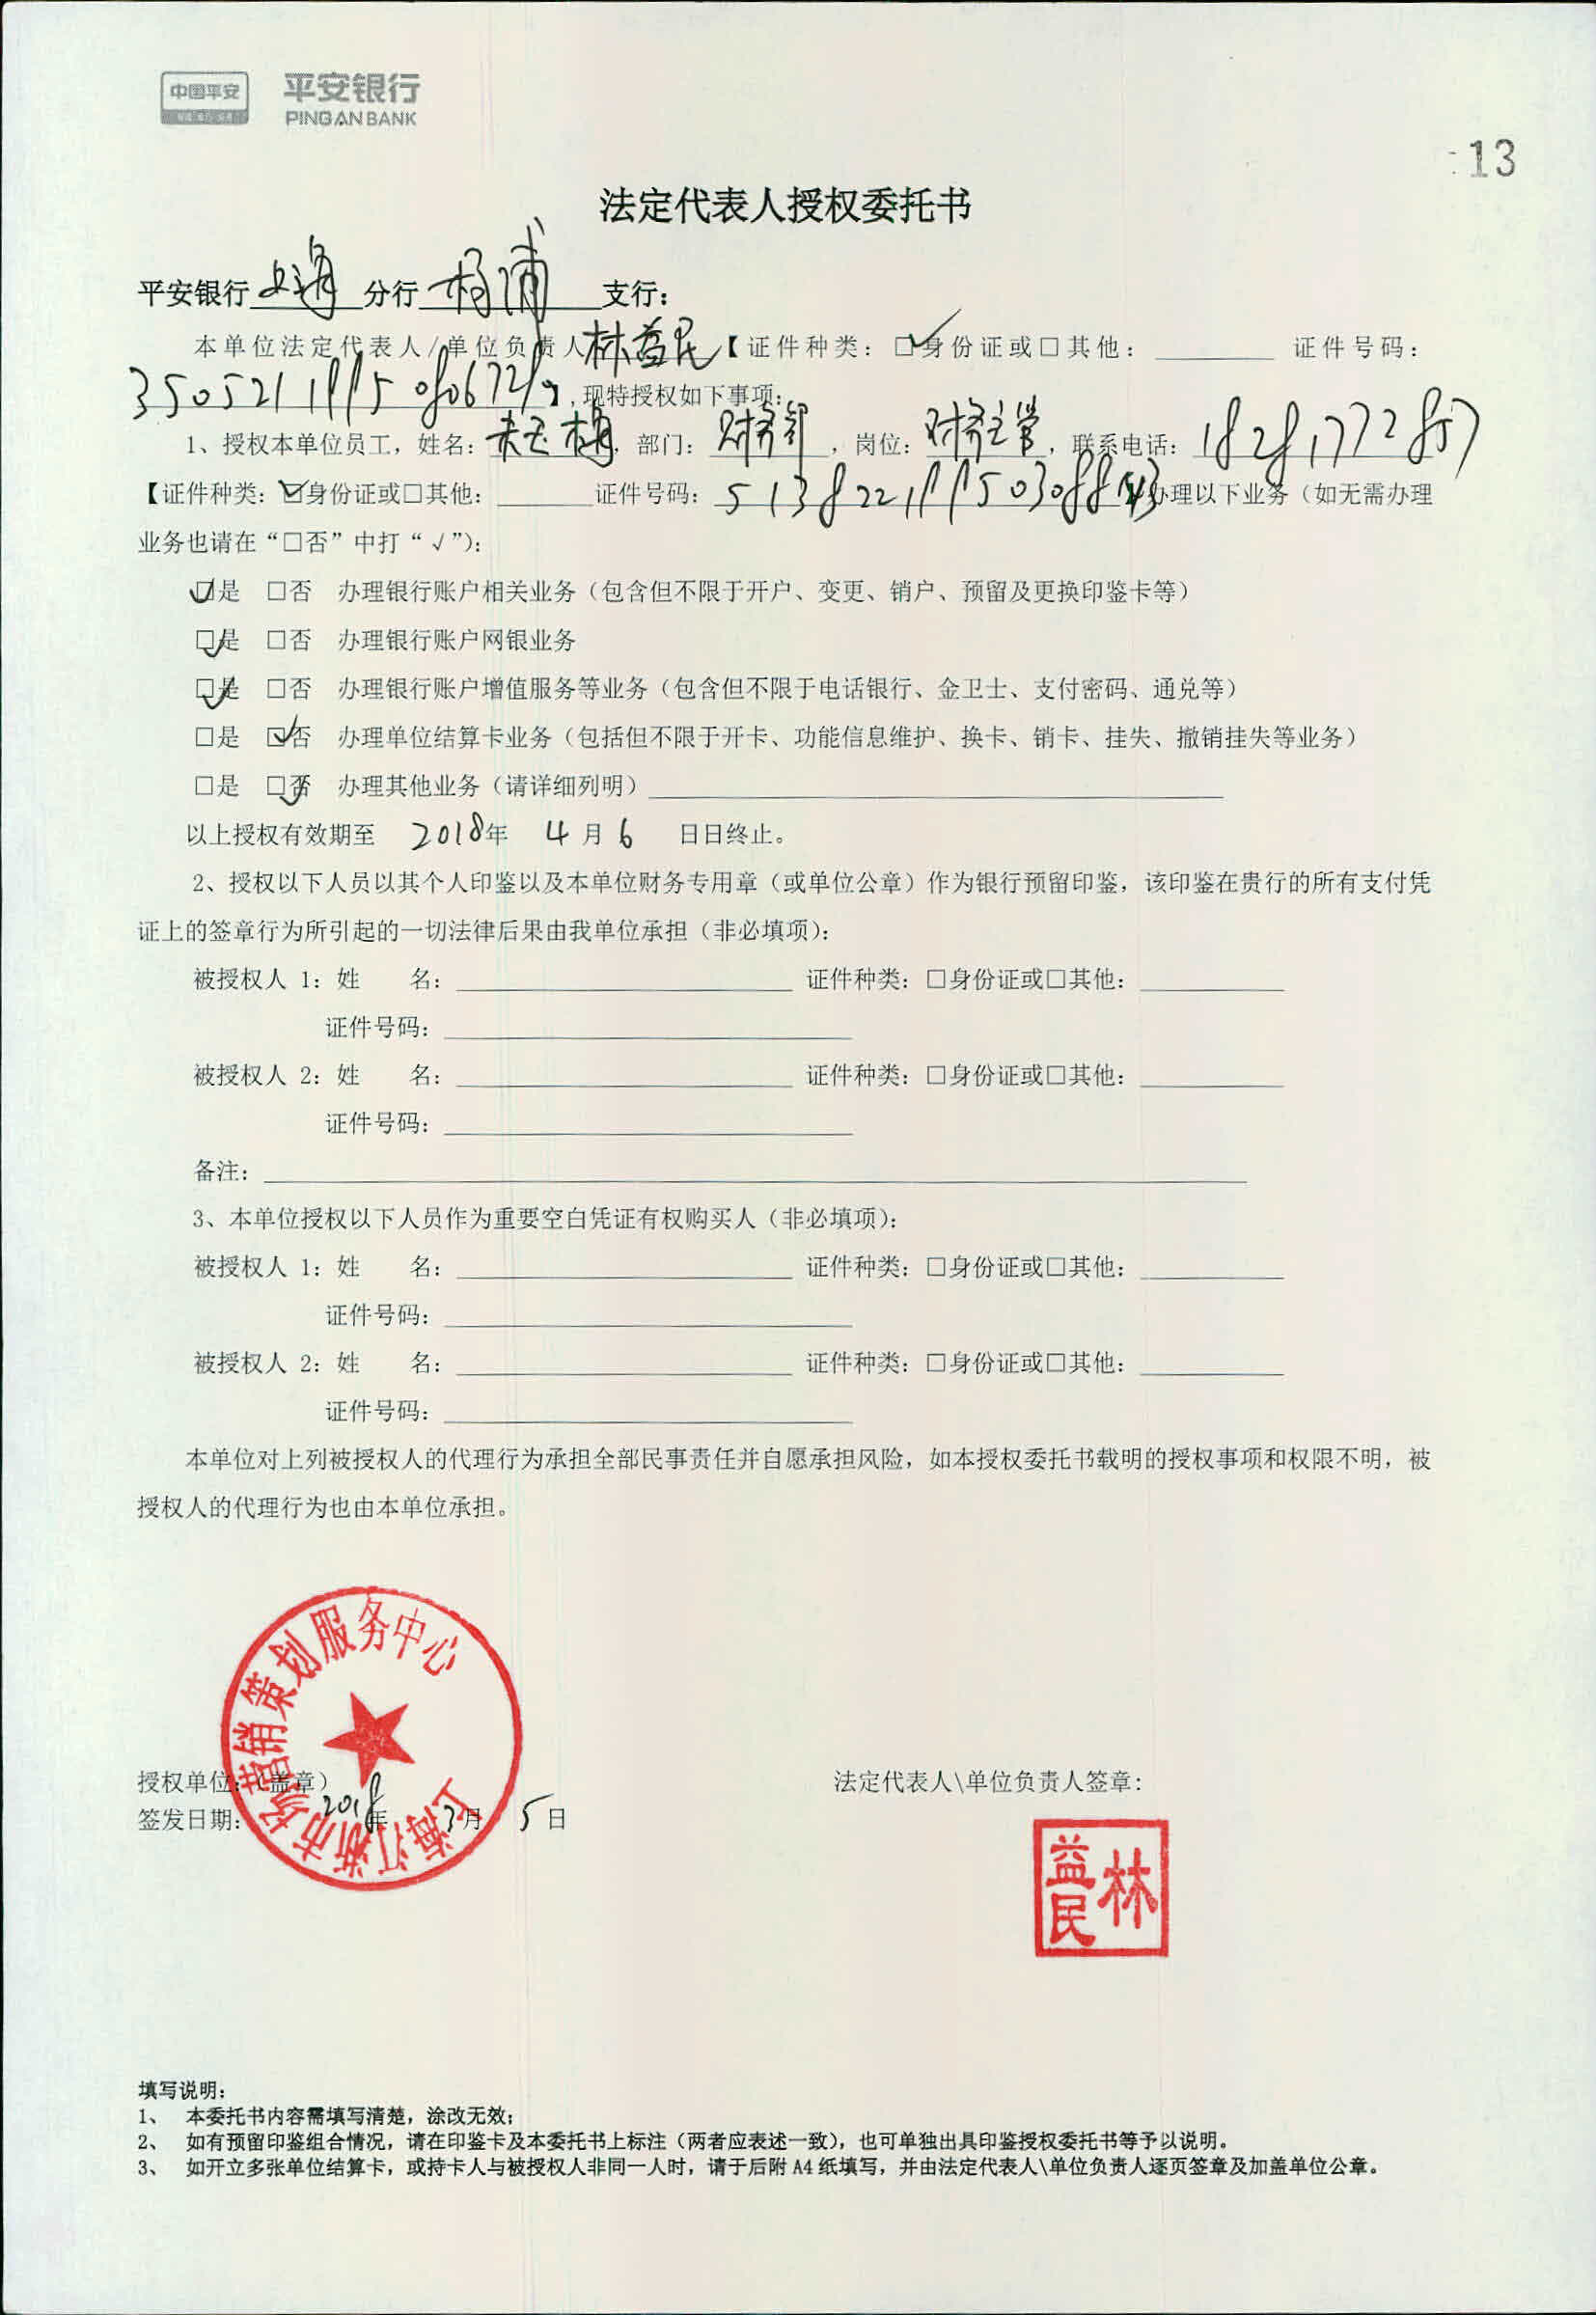 中国平安
平安银行
PING AN BANK
13
法定代表人授权委托书
平安银行 上海 分行 杨浦 支行：
本单位法定代表人/单位负责人 林益民 【证件种类：☑身份证或□其他：________ 证件号码：
】，现特授权如下事项：
1、授权本单位员工，姓名： 玉梅，部门： 财务部 ，岗位： 财务主管 ，联系电话：
【证件种类：☑身份证或□其他：________证件号码： 】办理以下业务（如无需办理
业务也请在“□否”中打“√”）：
☑是 □否 办理银行账户相关业务（包含但不限于开户、变更、销户、预留及更换印鉴卡等）
☑是 □否 办理银行账户网银业务
☑是 □否 办理银行账户增值服务等业务（包含但不限于电话银行、金卫士、支付密码、通兑等）
□是 ☑否 办理单位结算卡业务（包括但不限于开卡、功能信息维护、换卡、销卡、挂失、撤销挂失等业务）
□是 ☑否 办理其他业务（请详细列明）________
以上授权有效期至 2018年 4月6 日日终止。
2、授权以下人员以其个人印鉴以及本单位财务专用章（或单位公章）作为银行预留印鉴，该印鉴在贵行的所有支付凭
证上的签章行为所引起的一切法律后果由我单位承担（非必填项）：
被授权人 1：姓 名：________ 证件种类：□身份证或□其他：________
证件号码：________
被授权人 2：姓 名：________ 证件种类：□身份证或□其他：________
证件号码：________
备注：________
3、本单位授权以下人员作为重要空白凭证有权购买人（非必填项）：
被授权人 1：姓 名：________ 证件种类：□身份证或□其他：________
证件号码：________
被授权人 2：姓 名：________ 证件种类：□身份证或□其他：________
证件号码：________
本单位对上列被授权人的代理行为承担全部民事责任并自愿承担风险，如本授权委托书载明的授权事项和权限不明，被
授权人的代理行为也由本单位承担。
上海江浙市场营销策划服务中心
授权单位：（盖章）
法定代表人\单位负责人签章：
签发日期： 2018年 3月 5日
林益民
填写说明：
1、 本委托书内容需填写清楚，涂改无效；
2、 如有预留印鉴组合情况，请在印鉴卡及本委托书上标注（两者应表述一致），也可单独出具印鉴授权委托书等予以说明。
3、 如开立多张单位结算卡，或持卡人与被授权人非同一人时，请于后附 A4 纸填写，并由法定代表人\单位负责人逐页签章及加盖单位公章。